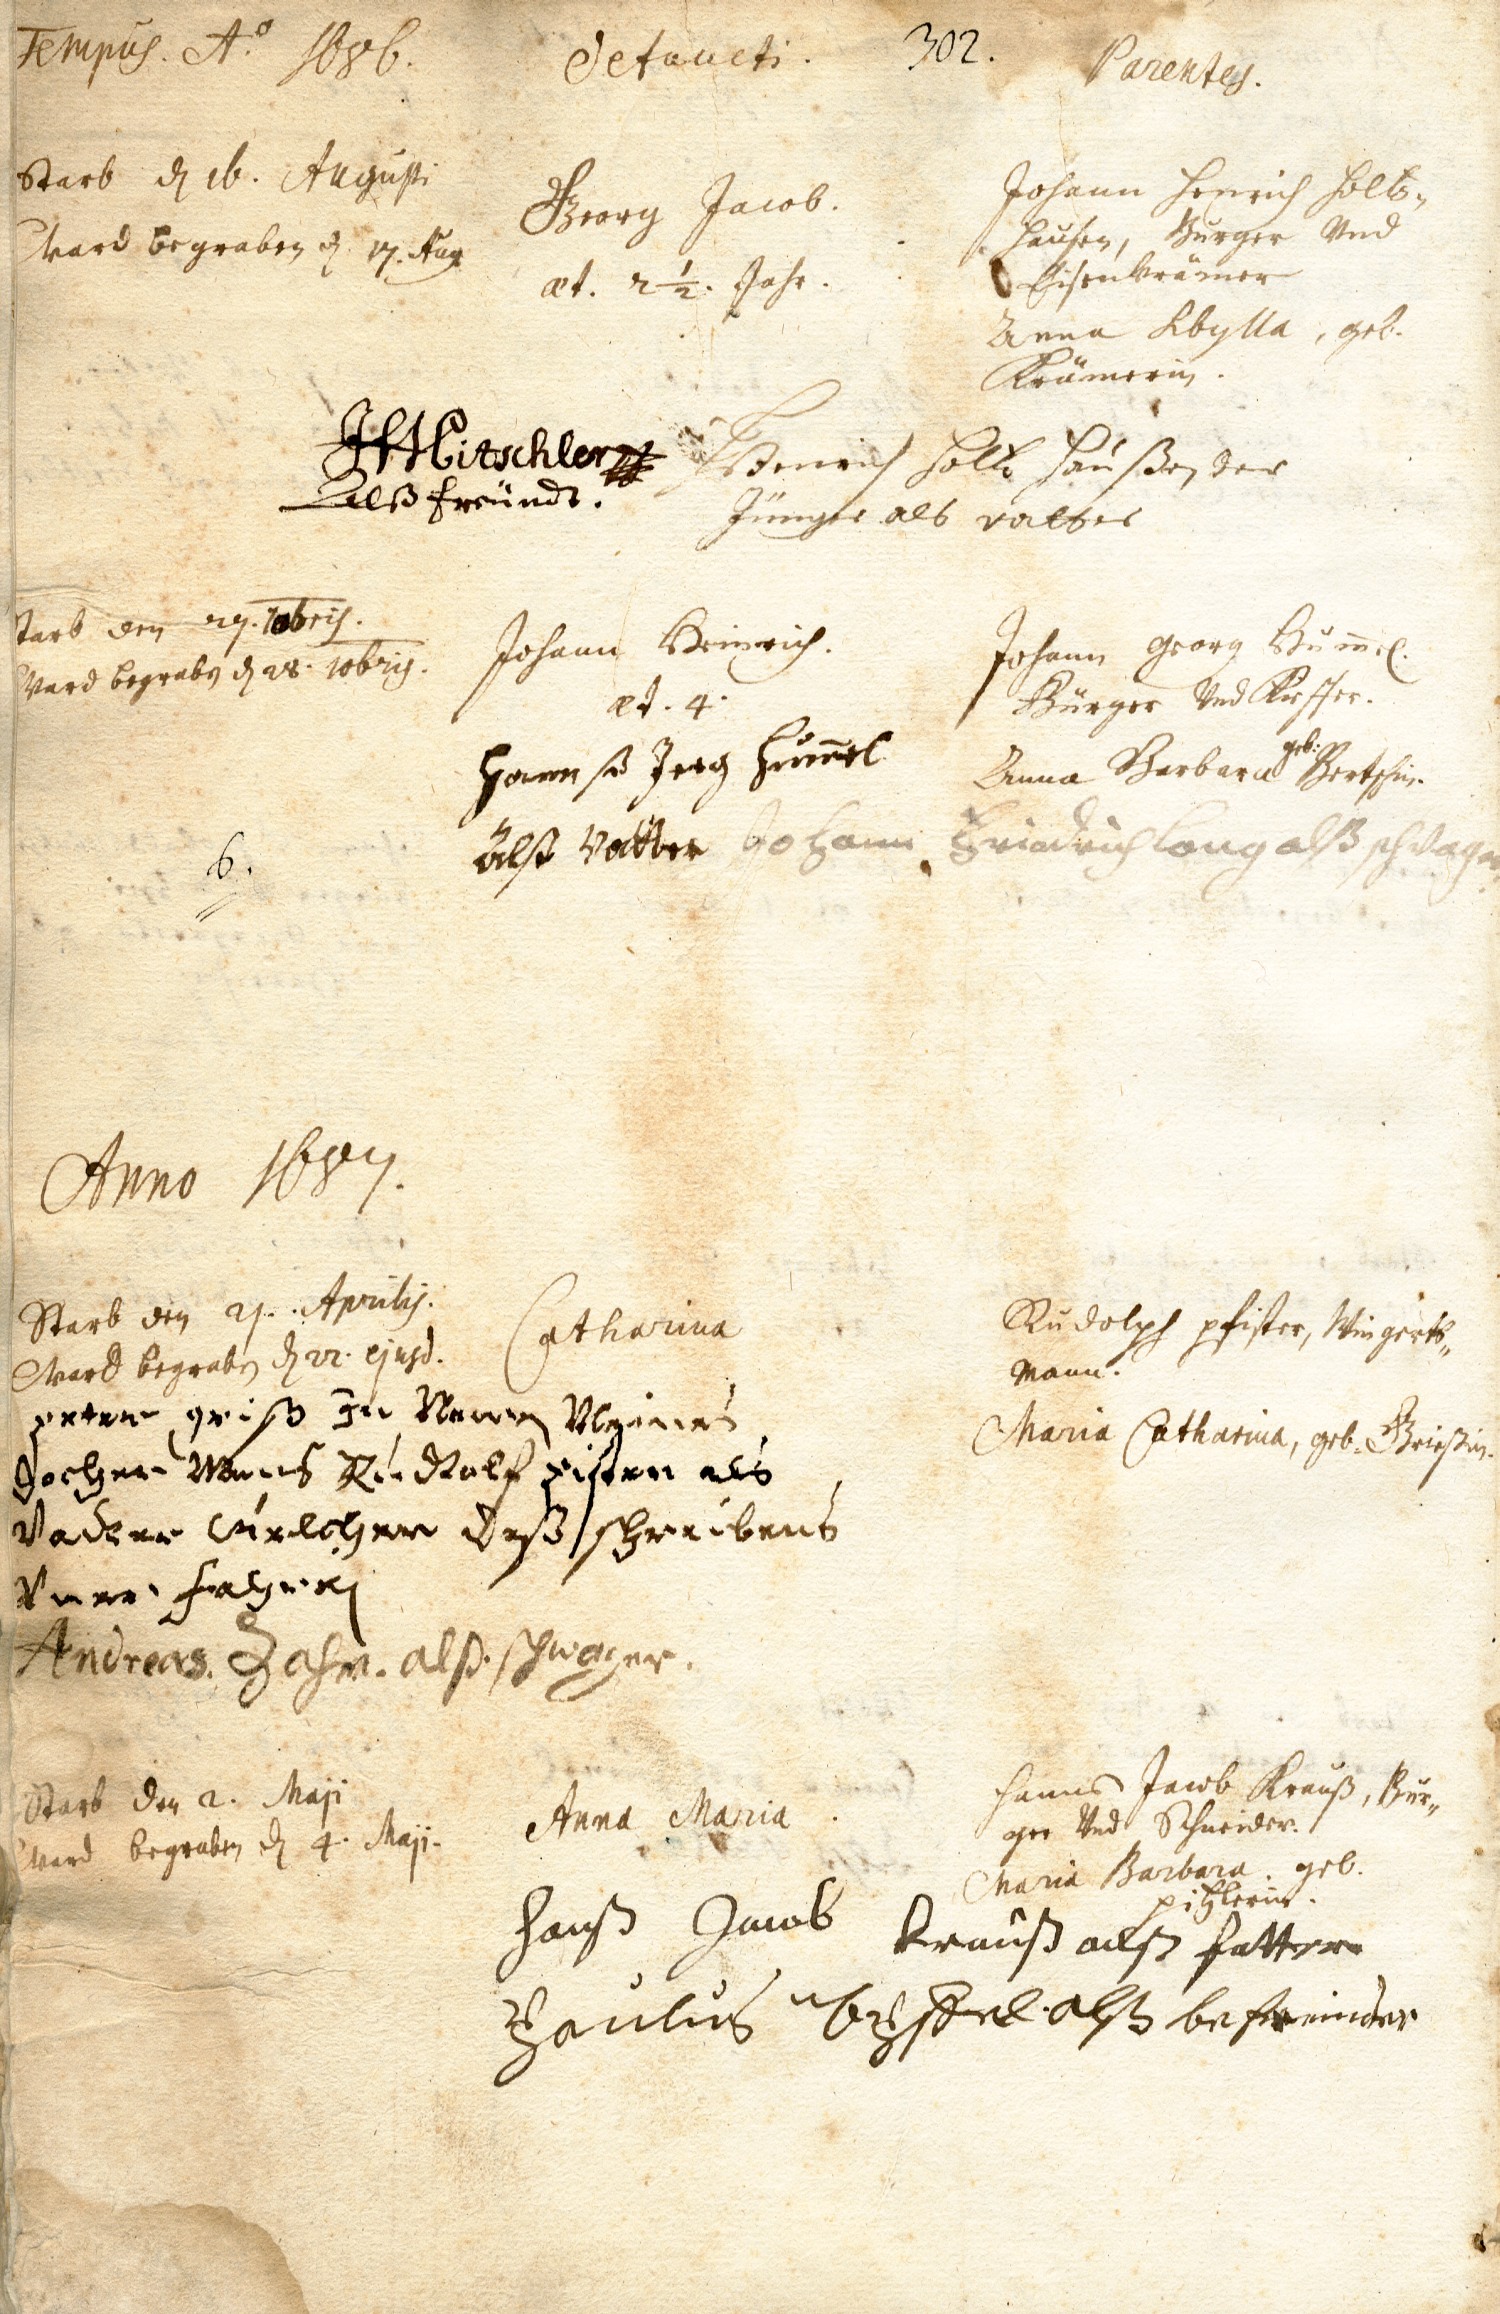 Tempus. Aº 1686. Defuncti. 302. Parentes.
Starb dẽ 16. Augusti
Ward begraben dẽ 17. Aug
Georg Jacob.
æt. 2 1/2. Jahr.
Johann Henrich Holtz-
hausen, Burger Und
Eisenkrämer
Anna Sibylla, geb.
Krämerin.
JH Hitschler
Alß freündt.
Henrich Holtzhaußen der
Jünger als vatter
starb den 27. 10bris.
Ward begrabẽ dẽ 28. 10bris.
Johann Heinrich.
æt. 4.
Johann Georg Hum̃el.
Bürger Und Kieffer.
Anna Barbara geb: Bertschin.
Hannß Jerg Hum̃el
Alß Vatter Johann Friedrich Lang alß schwager
6.
Anno 1687.
Starb den 21. Aprilis.
Ward begrabẽ dẽ 22. ejusd.
Catharina
Rudolph Pfister, Wingerts-
mann.
Maria Catharina, geb. Grießin.
peter griß In Namen Meines
dochter Mans Rudtolf pister als
Vatter welcher deß schreibens
Andreas. Zahn. alß. schwager.
Starb den 2. Maji
Ward begraben dẽ 4. Maji.
Anna Maria.
Hanns Jacob Krauß, Bur-
ger Und Schneider.
Maria Barbara. geb.
pitzlerin.
Hanß Jacob Krauß alß fatter
Paulus alß befreinder